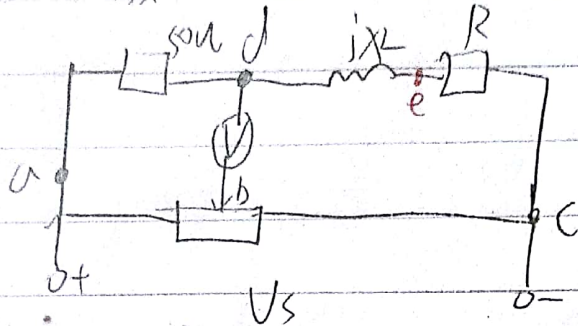 50Ω d jXL R
e
V
a b C
o+ Us o-